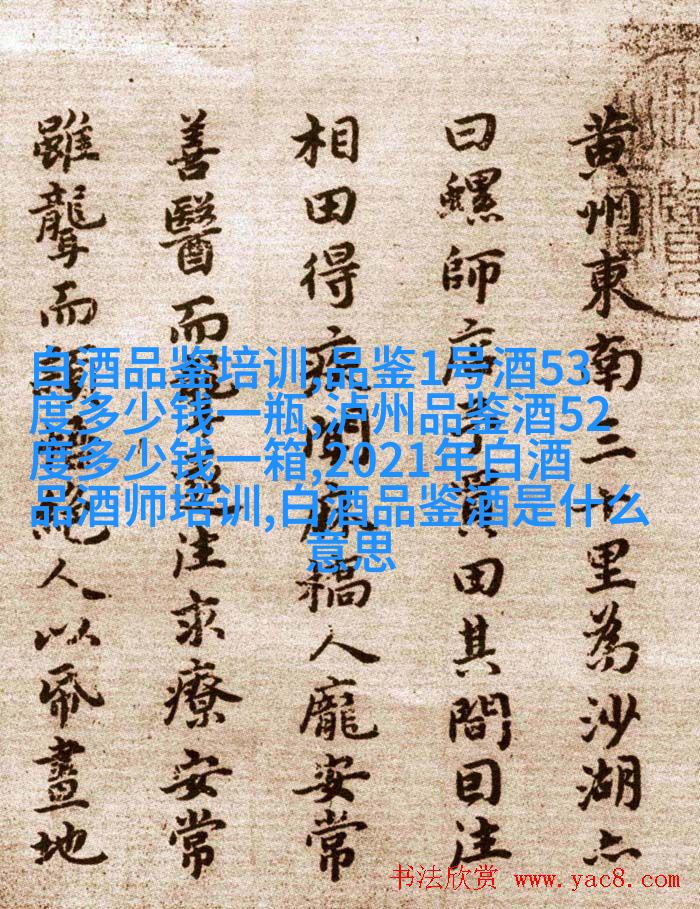 黄州東南三十里為沙湖亦
曰螺師店予買田其間因往
相田得疾聞麻橋人龐安常
善醫而聾遂往求療安常
雖聾而穎悟絶人以帋畫地
白酒品鉴培训,品鉴1号酒53
度多少钱一瓶,泸州品鉴酒52
度多少钱一箱,2021年白酒
品酒师培训,白酒品鉴酒是什么
意思
书法欣赏 www.yac8.com